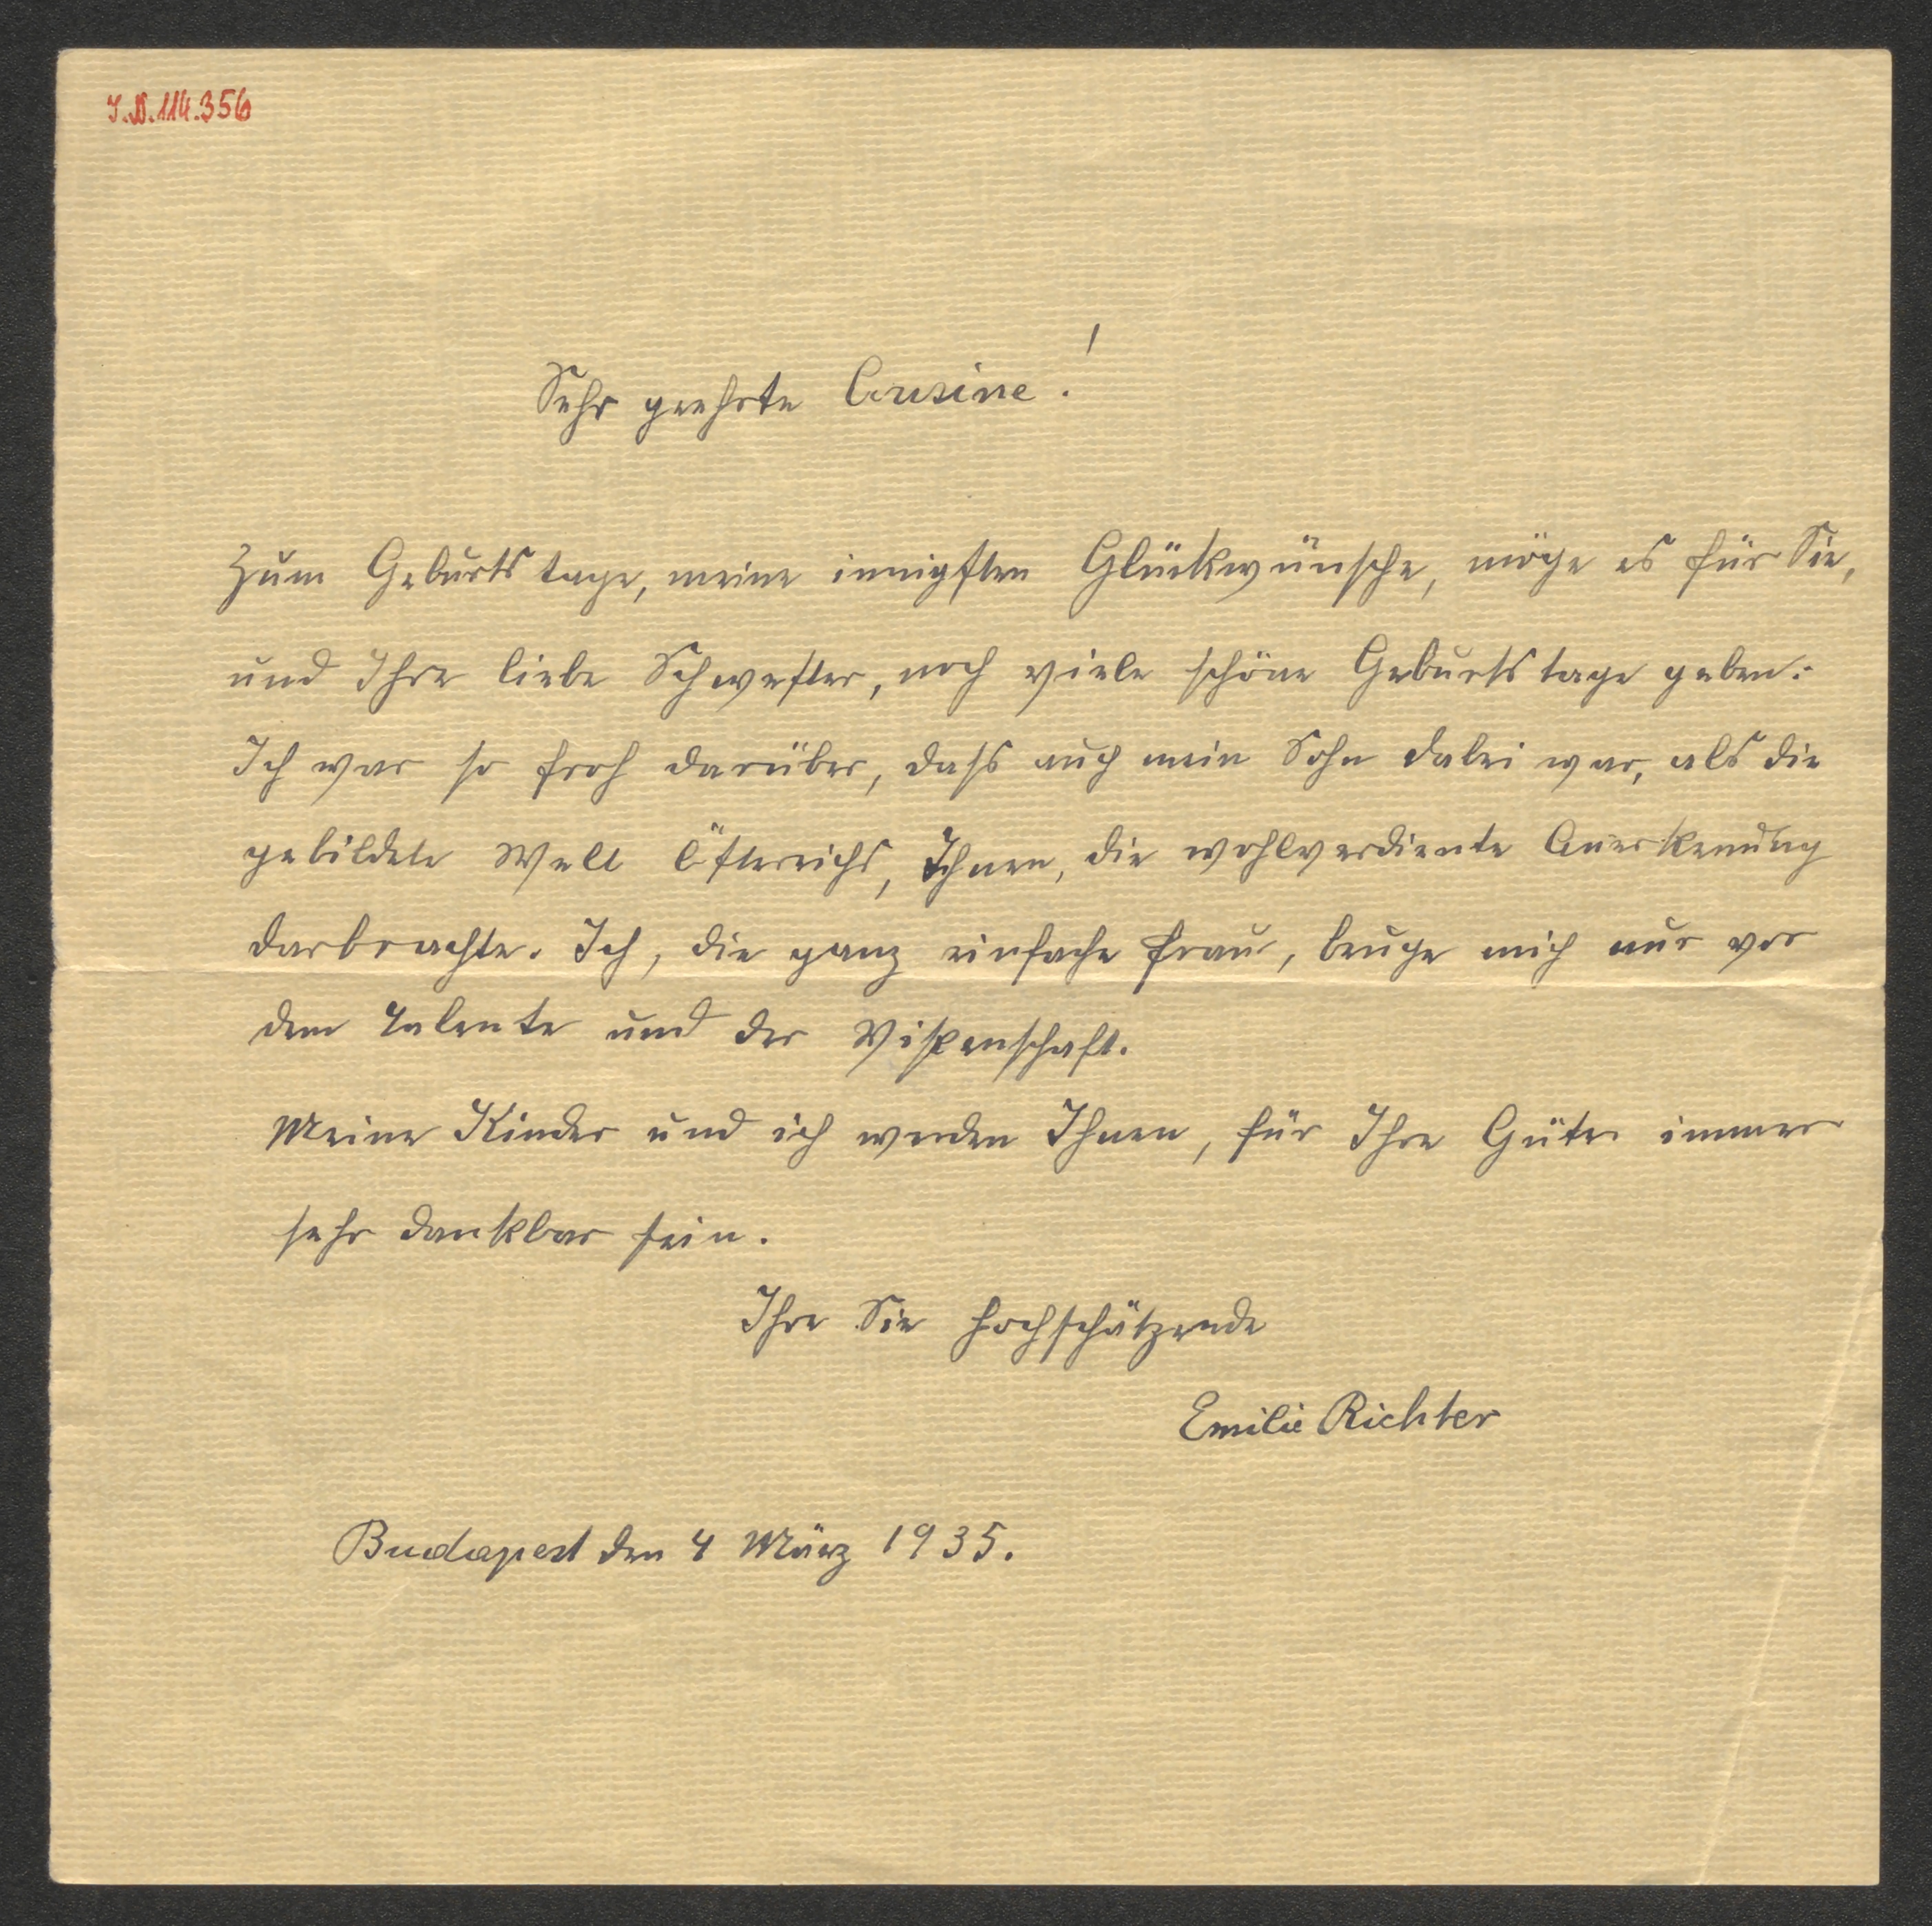 I.N.114.356
Sehr geehrte Cousine!
Zum Geburtstage, meine innigsten Glückwünsche, möge es für Sie,
und Ihre liebe Schwester, noch viele schöne Geburtstage geben.
Ich war so froh darüber, dass auch mein Sohn dabei war, als die
gebildete Welt Österreichs, Ihnen, die wohlverdiente Anerkennung
darbrachte. Ich, die ganz einfache Frau, beuge mich nur vor
dem Talente und der Wissenschaft.
Meine Kinder und ich werden Ihnen, für Ihre Güte immer
sehr dankbar sein.
Ihre Sie hochschätzende
Emilie Richter
Budapest den 4 März 1935.